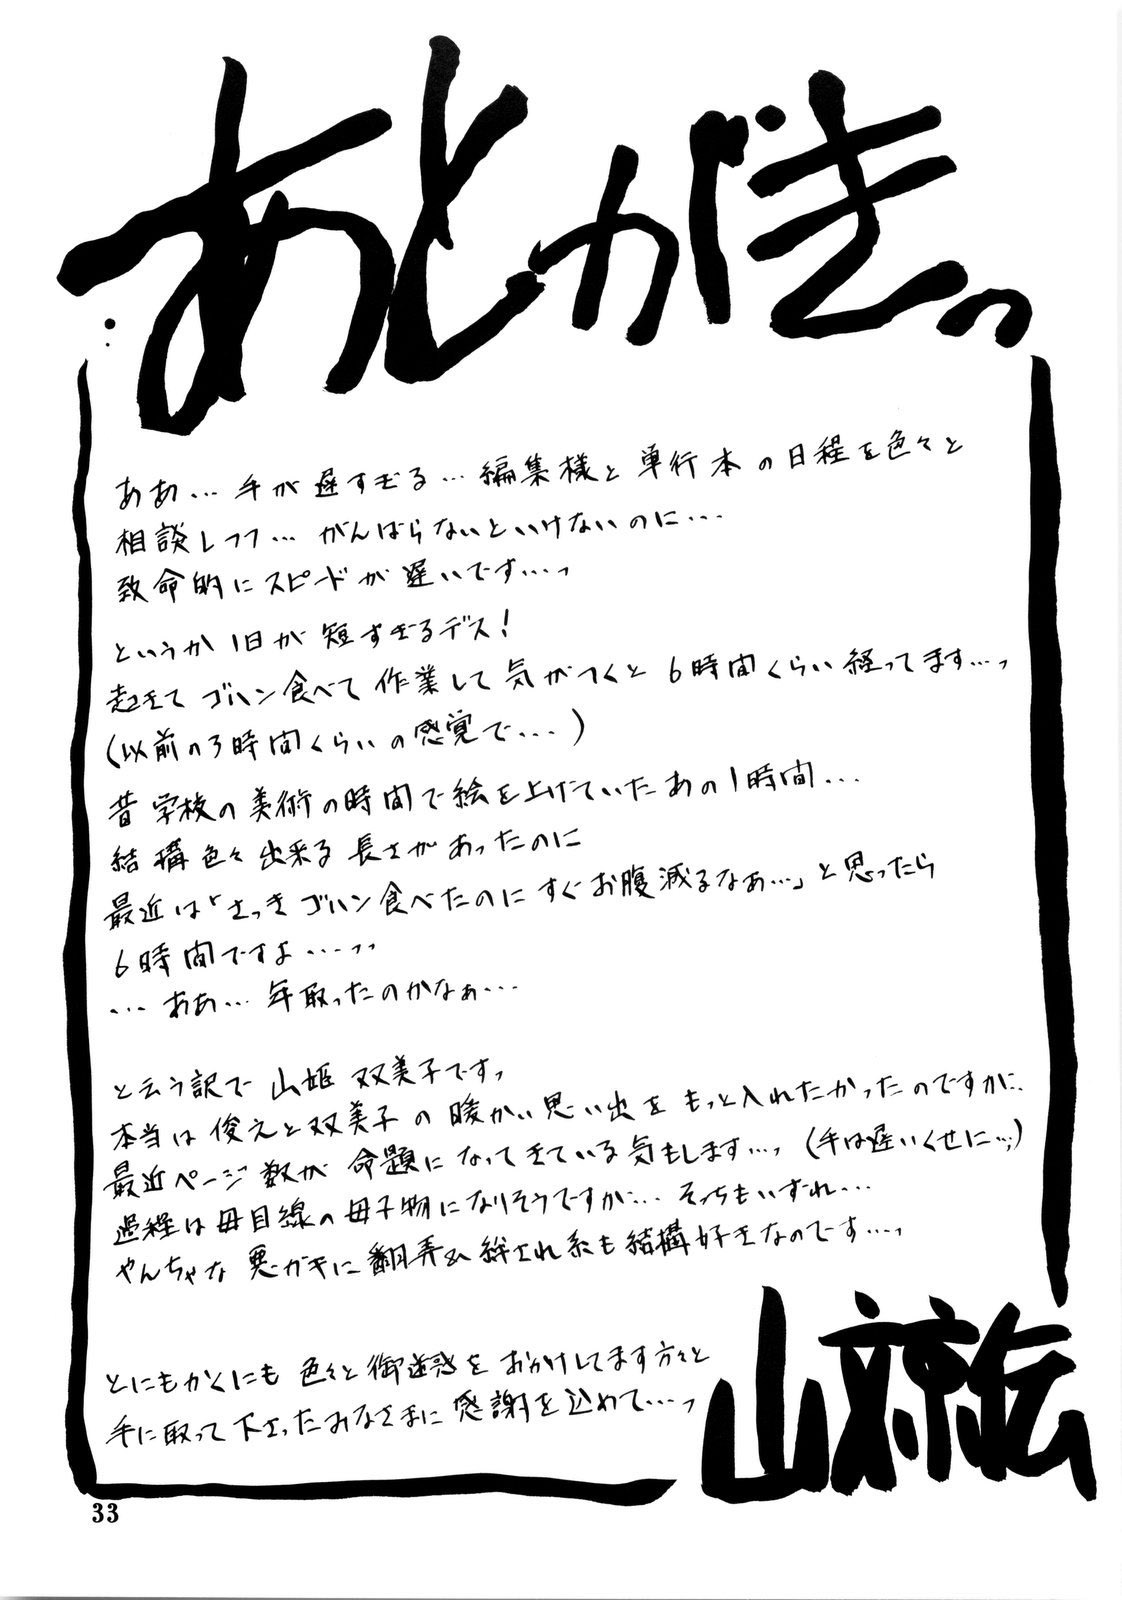 あとがきっ
ああ… 手が遅すぎる… 編集様と単行本の日程を色々と
相談しつつ… がんばらないといけないのに…
致命的にスピードが遅いです…っ
というか1日が短すぎるデス!
起きてゴハン食べて作業して気がつくと6時間くらい経ってます…っ
(以前の3時間くらいの感覚で…)
昔学校の美術の時間で絵を上げていたあの1時間…
結構色々出来る長さがあったのに
最近は「さっきゴハン食べたのにすぐお腹減るなぁ…」と思ったら
6時間ですよ…っっ
… ああ… 年取ったのかなぁ…
と云う訳で 山姫 双美子ですっ
本当は 俊之と双美子の暖かい思い出をもっと入れたかったのですが、
最近ページ数が命題になってきている気もします…っ (手は遅いくせに…;)
過程は母目線の母子物になりそうですが… そっちもいずれ…
やんちゃな悪ガキに翻弄&絆され系も結構好きなのです…っ
とにもかくにも 色々と御迷惑をおかけしてます方々と
手に取って下さったみなさまに感謝を込めて…っ
山文京伝
33